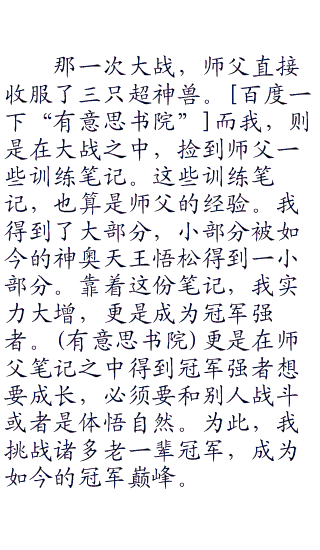 那一次大战，师父直接
收服了三只超神兽。[百度一
下“有意思书院”]而我，则
是在大战之中，捡到师父一
些训练笔记。这些训练笔
记，也算是师父的经验。我
得到了大部分，小部分被如
今的神奥天王悟松得到一小
部分。靠着这份笔记，我实
力大增，更是成为冠军强
者。(有意思书院)更是在师
父笔记之中得到冠军强者想
要成长，必须要和别人战斗
或者是体悟自然。为此，我
挑战诸多老一辈冠军，成为
如今的冠军巅峰。